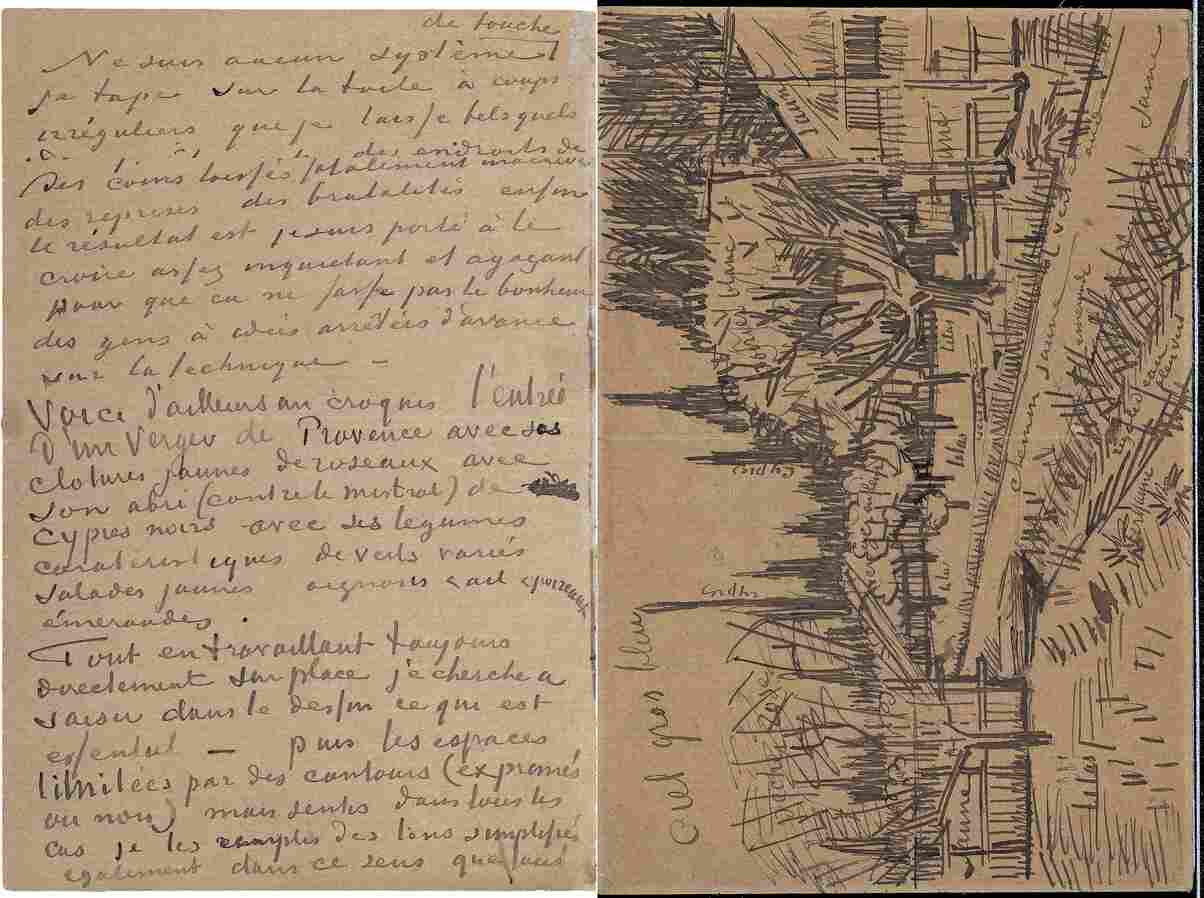 de touche
Ne suis aucun système
je tape sur la toile à coups
irréguliers que je laisse tels quels
des endroits de
Des coins laissés totalement
des reprises des brutalités enfin
le résultat est je suis porté à le
croire assez inquietant et agaçant
pour que ca ne fasse pas le bonheur
des gens à idées arrêtées d'avance
sur la technique –
Voici d'ailleurs un croquis l'entrée
D'un Verger de Provence avec ses
clotures jaunes de roseaux avec
son abri (contre le mistral) de
cyprès noirs avec ses legumes
de verts variés
salades jaunes oignons & ail & poireaux
émeraudes.
Tout en travaillant toujours
directement sur place je cherche a
saisir dans le dessin ce qui est
essentiel — puis les espaces
limitées par des contours (exprimés
ou non) mais sentis dans tous les
cas je les remplis des tons simplifiés
également dans ce sens que tout
Ciel gros bleu
jaune
lilas
lilas
lilas
chemin jaune
vert
jaune
pecher rose
jaune
lilas